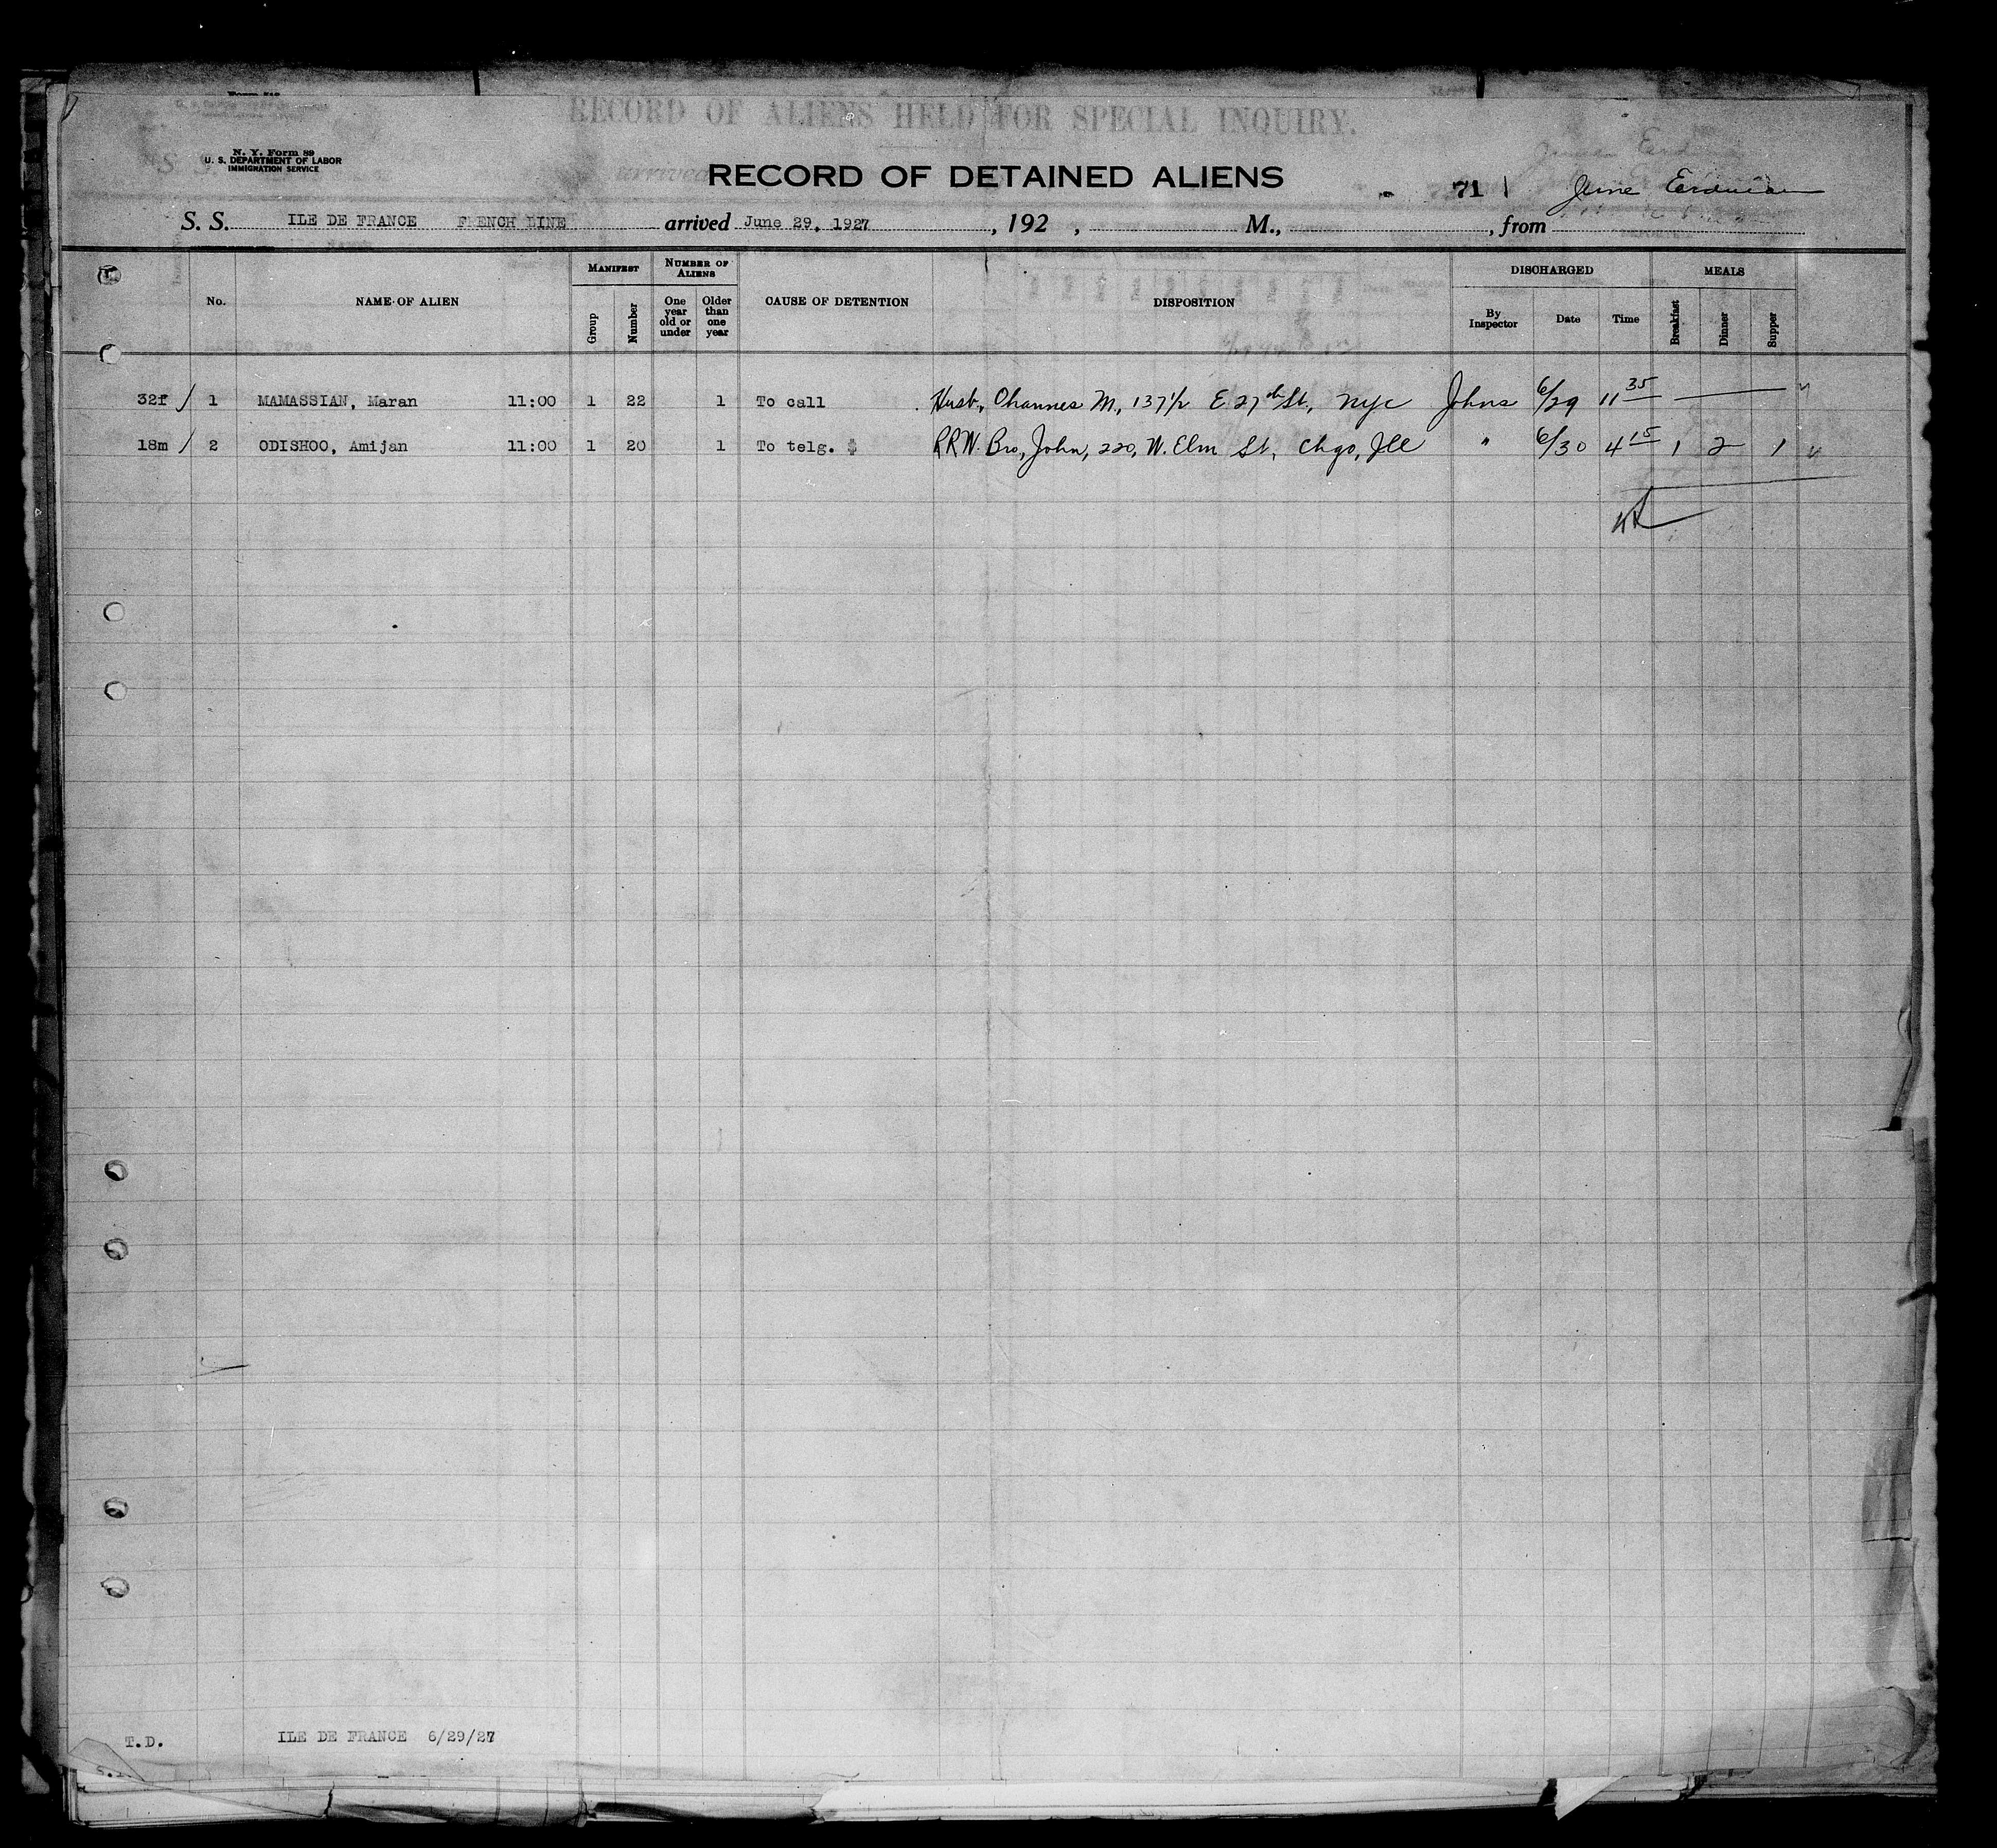 RECORD OF ALIENS HELD FOR SPECIAL INQUIRY.
N. Y. Form 89
U. S. DEPARTMENT OF LABOR
IMMIGRATION SERVICE
RECORD OF DETAINED ALIENS 71 June
S. S. ILE DE FRANCE FRENCH LINE arrived June 29, 1927, 192 , M., , from
No. NAME OF ALIEN MANIFEST Group Number NUMBER OF ALIENS One year old or under Older than one year CAUSE OF DETENTION DISPOSITION DISCHARGED By Inspector Date Time MEALS Breakfast Dinner Supper
32f / 1 MAMASSIAN, Maran 11:00 1 22 1 To call Husb., Ohannes M., 137 1/2 E 27th St., NYC Johns 6/29 11 35
18m / 2 ODISHOO, Amijan 11:00 1 20 1 To telg. $ RRW. Bro, John, 220, W. Elm St, Chgo, Ill " 6/30 4 15 1 2 1
T.D. ILE DE FRANCE 6/29/27